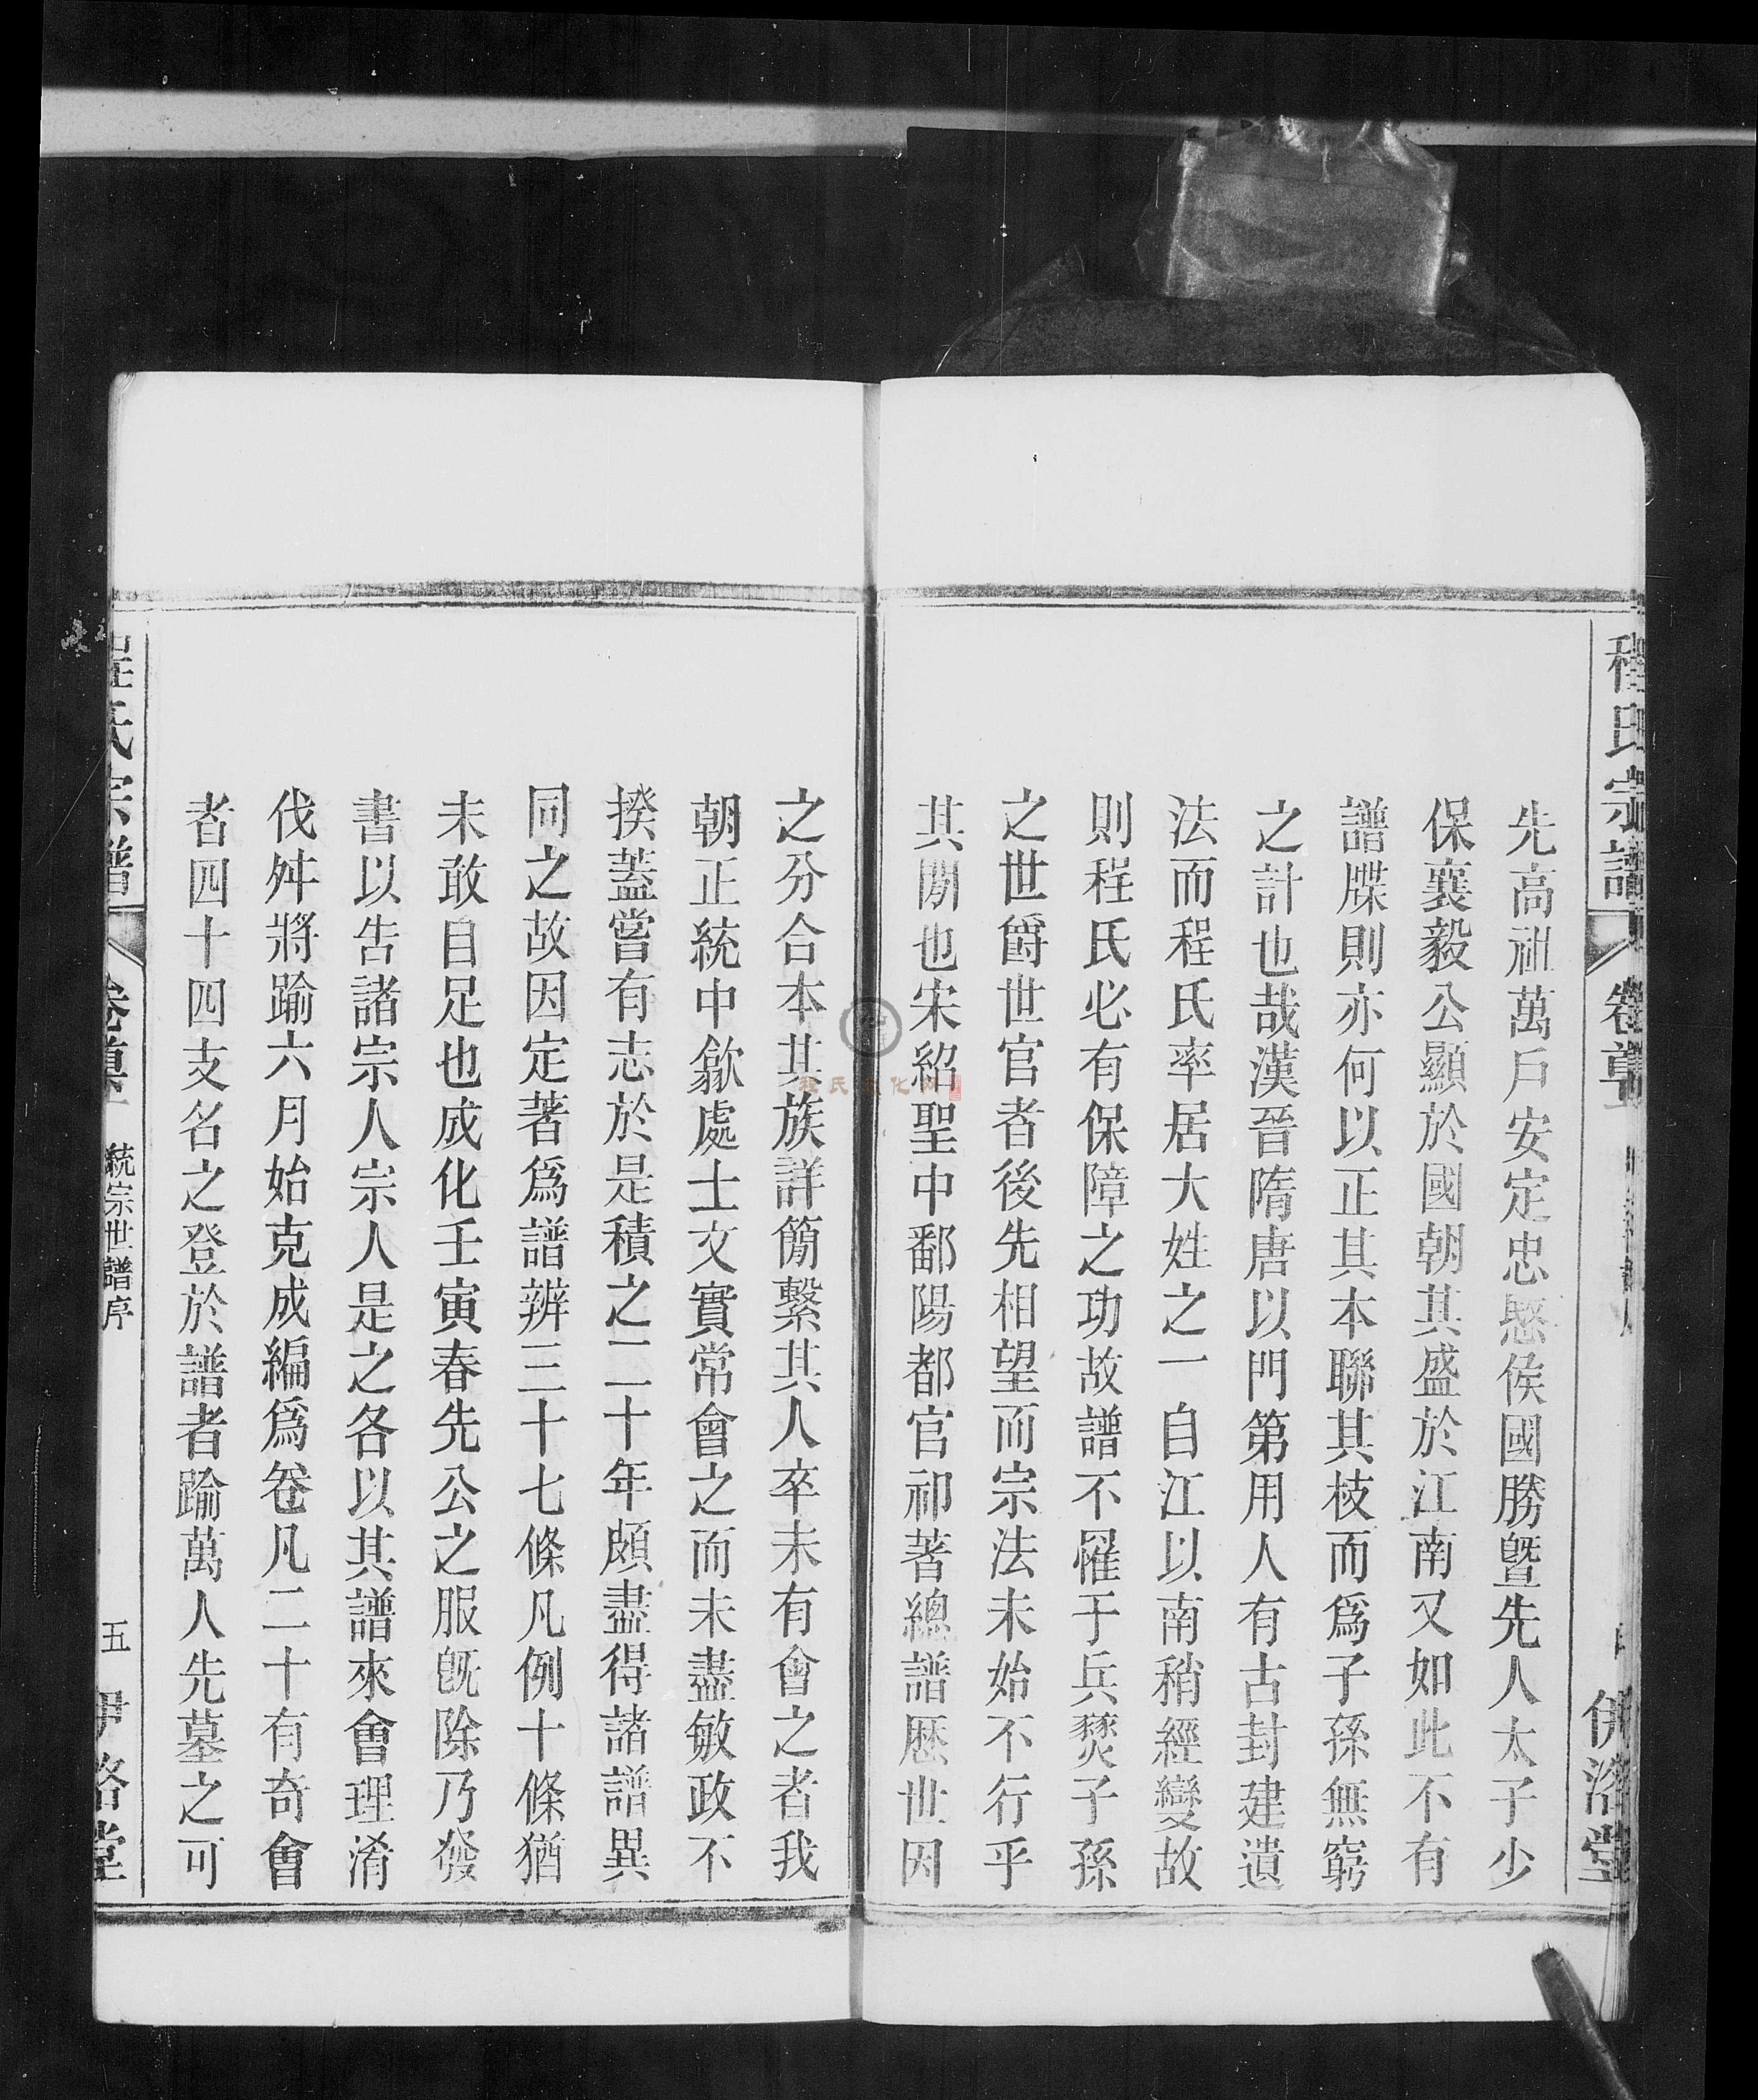 程氏宗譜
伊洛堂
先高祖萬戶安定忠愍侯國勝曁先人太子少
保襄毅公顯於國朝其盛於江南又如此不有
譜牒則亦何以正其本聯其枝而爲子孫無窮
之計也哉漢晉隋唐以門第用人有古封建遺
法而程氏率居大姓之一自江以南稍經變故
則程氏必有保障之功故譜不罹于兵燹子孫
之世爵世官者後先相望而宗法未始不行乎
其閒也宋紹聖中鄱陽都官祁著總譜歷世因
之分合本其族詳簡繫其人卒未有會之者我
朝正統中歙處士文實常會之而未盡敏政不
揆蓋嘗有志於是積之二十年頗盡得諸譜異
同之故因定著爲譜辨三十七條凡例十條猶
未敢自足也成化壬寅春先公之服旣除乃發
書以告諸宗人宗人是之各以其譜來會理淆
伐舛將踰六月始克成編爲卷凡二十有奇會
者四十四支名之登於譜者踰萬人先墓之可
程氏宗譜
統宗世譜序
五
伊洛堂
程氏文化网